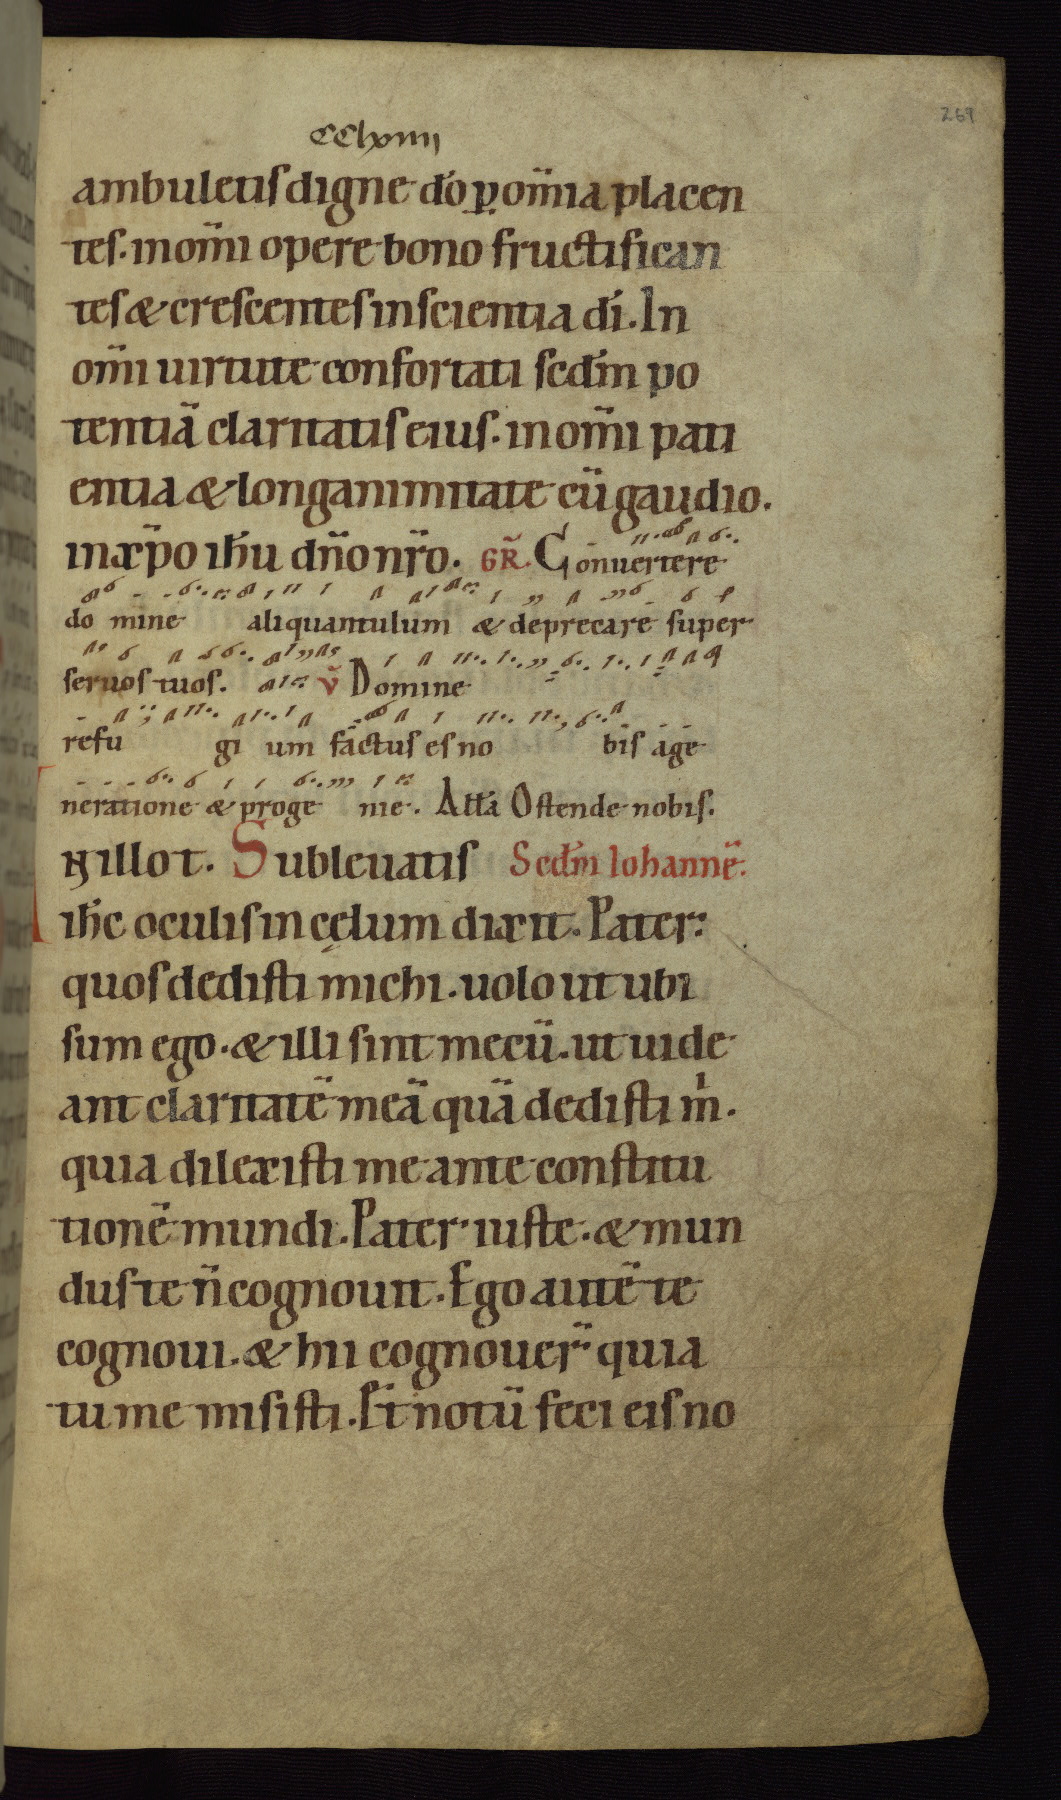 CClxiiii
269
ambuletis digne dō p̱ om̄ia placen
tes. in om̄i opere bono fructifican
tes & crescentes in scientia dī. In
om̄i uirtute confortati scdm̄ po
tentiā claritatis eius. in om̄i pati
entia & longanimitate cū gaudio.
in xp̄o ih̄u dn̄o nr̄o. GR̄. Conuertere
do mine aliquantulum & deprecare super
seruos tuos. v̄ Domine
refu gi um factus es no bis age
neratione & proge nie. Allā Ostende nobis.
IN illo t. Subleuatis Scdm̄ Iohannē.
ih̄c oculis in cęlum dixit. Pater:
quos dedisti michi. uolo ut ubi
sum ego. & illi sint mecū. ut uide
ant claritatē meā quā dedisti m̍.
quia dilexisti me ante constitu
tionē mundi. Pater iuste. & mun
dus te n̄ cognouit. Ego autē te
cognoui. & hii cognouer̄ quia
tu me misisti. Et notū feci eis no